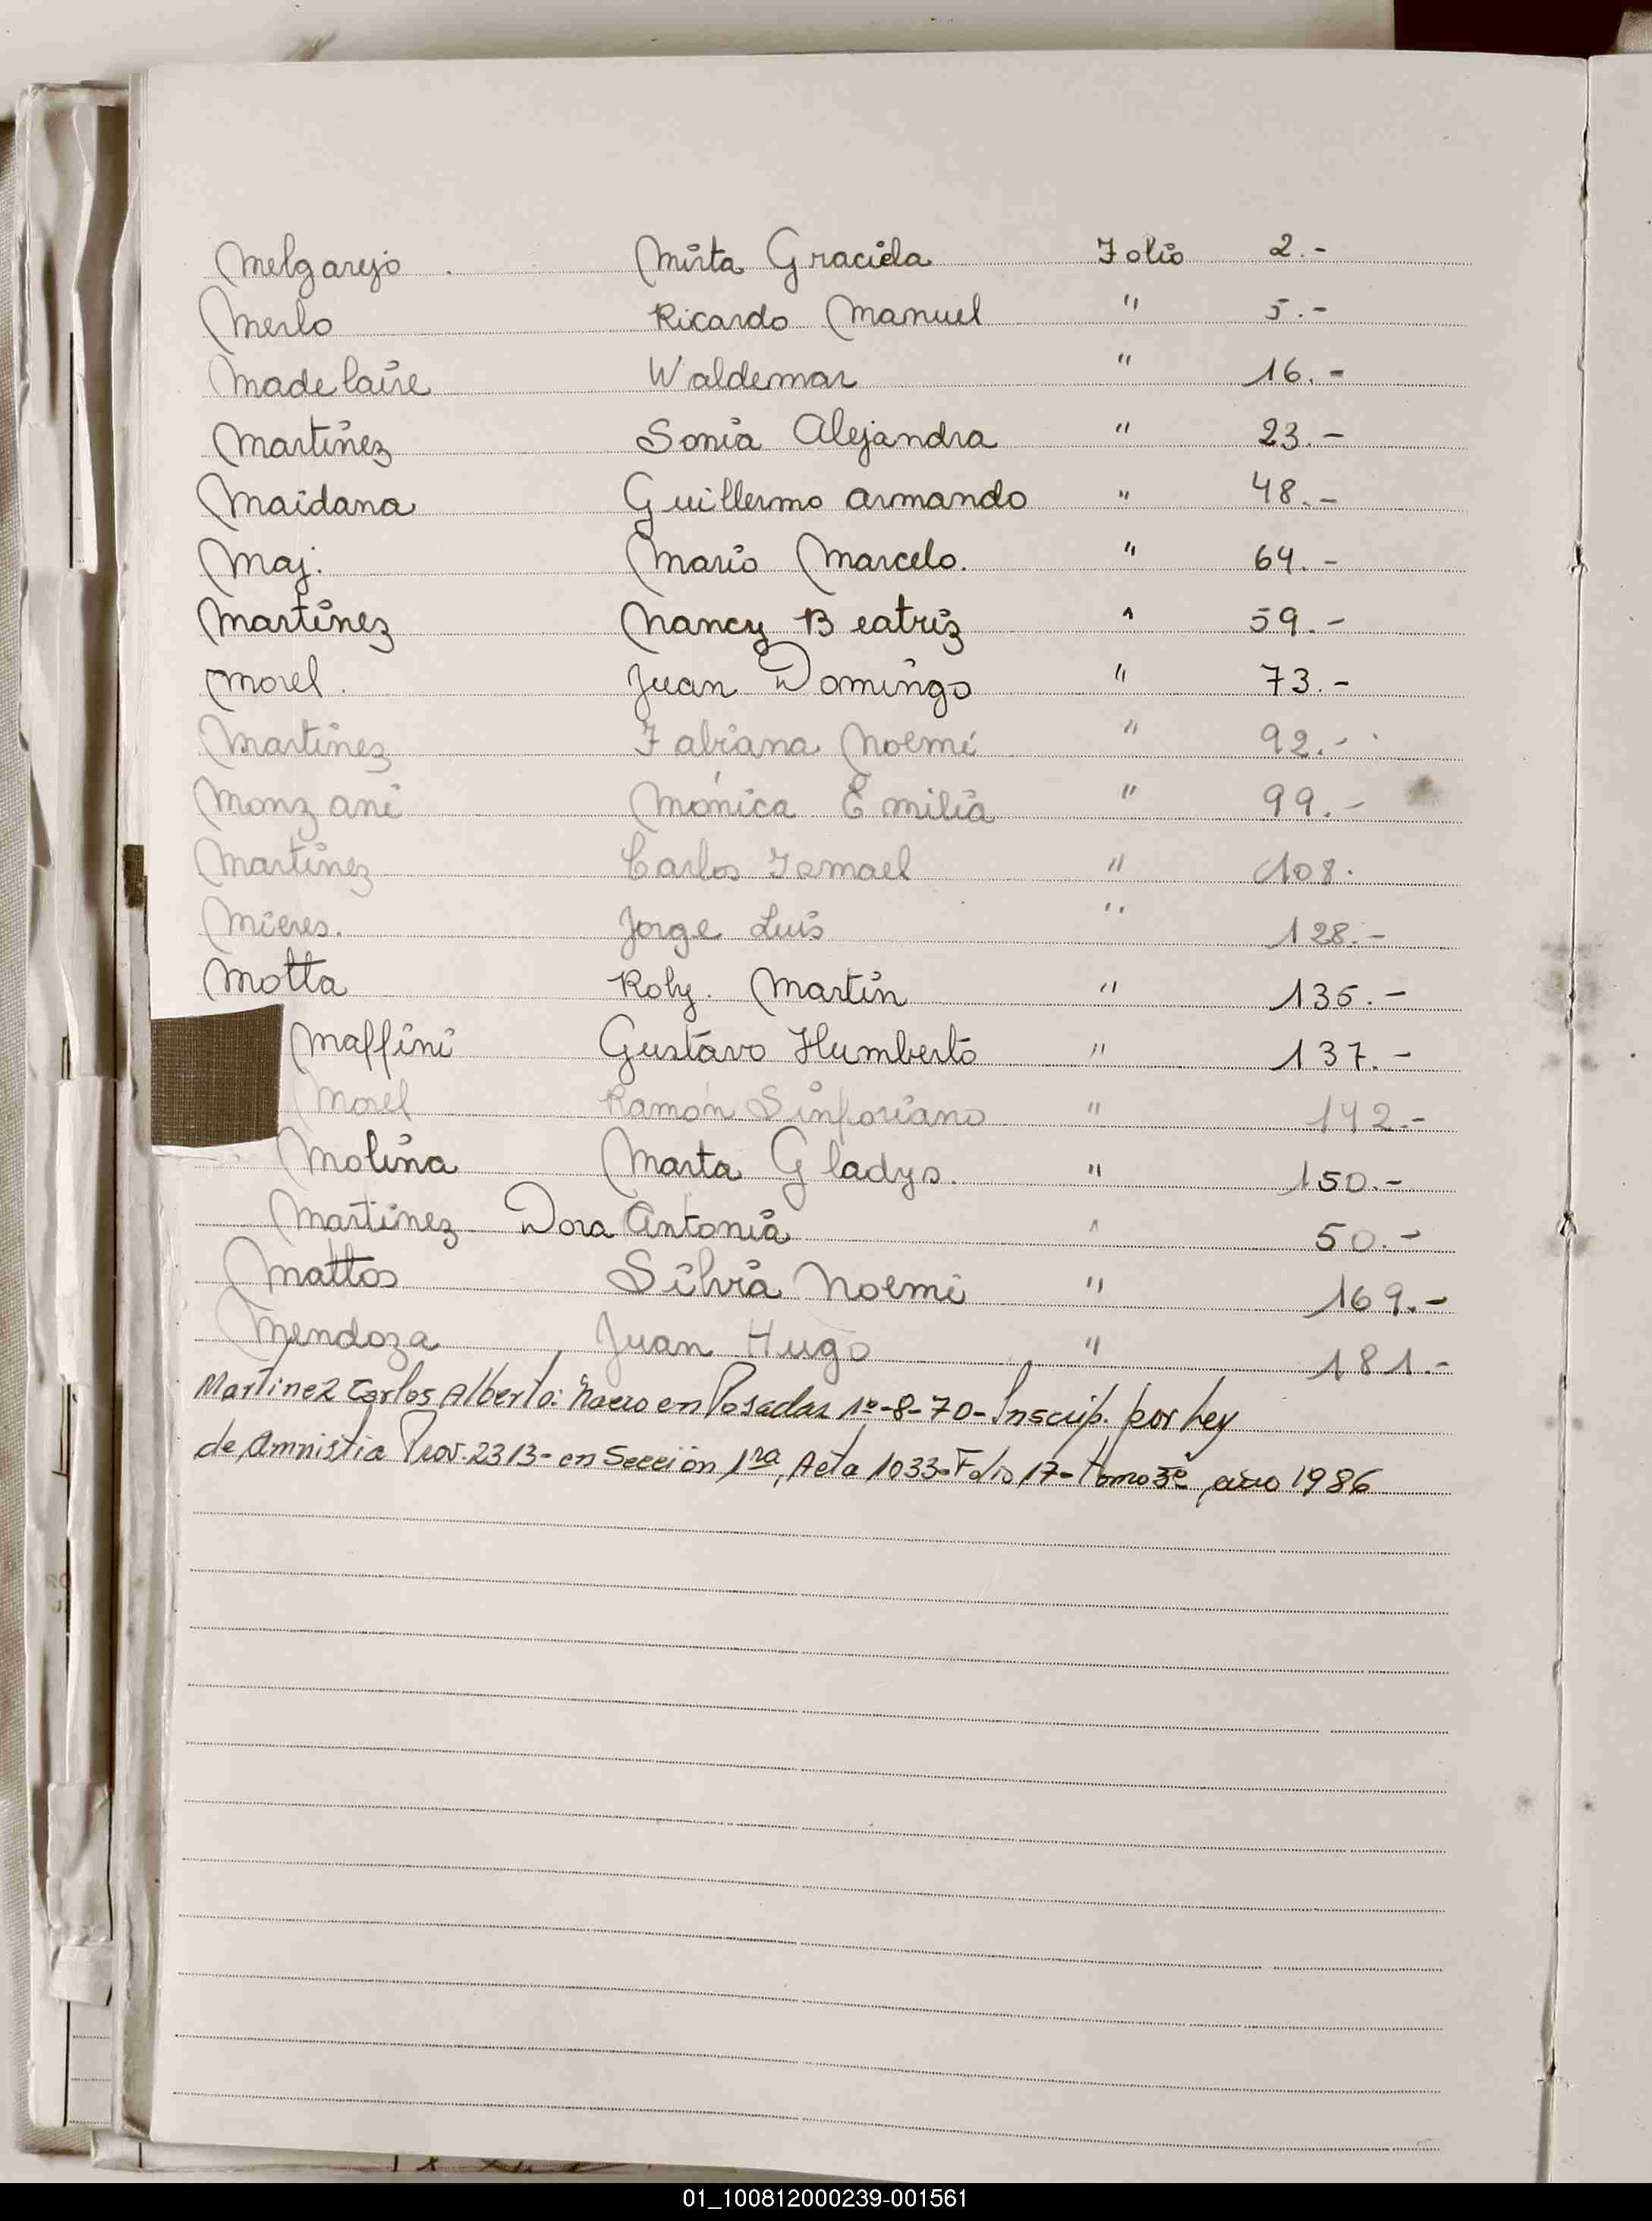 Melgarejo . Mirta Graciela Folio 2.-
Merlo Ricardo Manuel " 5.-
Madelaire Waldemar " 16.-
Martínez Sonia Alejandra " 23.-
Maidana Guillermo Armando " 48.-
Maj. Mario Marcelo. " 64.-
Martínez Nancy Beatriz " 59.-
Morel. Juan Domingo " 73.-
Martínez Fabiana Noemí " 92.-
Monzani Mónica Emilia " 99.-
Martínez Carlos Ismael " 108.
Mieres. Jorge Luis " 128.-
Motta Roly. Martín " 135.-
Maffini Gustavo Humberto " 137.-
Morel Ramón Sinforiano " 142.-
Molina Marta Gladys. " 150.-
Martínez Dora Antonia " 50.-
Mattos Silvia Noemi " 169.-
Mendoza Juan Hugo " 181.-
Martinez Carlos Alberto: Nacio en Posadas 1º-8-70- Inscrip. por Ley
de Amnistia Prov. 2313- en Sección 1ra, Acta 1033- Folio 17- Tomo 3º, año 1986
01_100812000239-001561